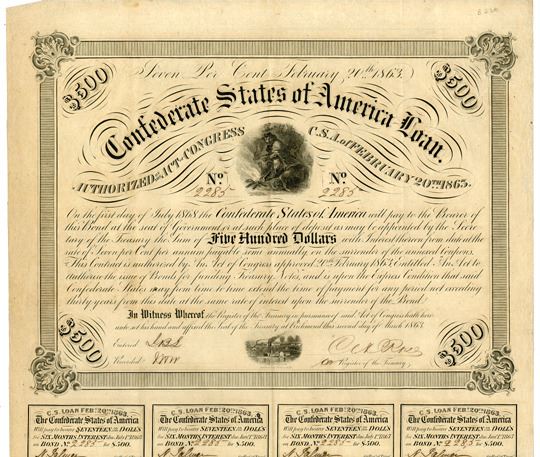 Seven Per Cent February 20th 1863.
$500
$500
Confederate States of America Loan.
AUTHORIZED BY ACT OF CONGRESS C.S.A. of FEBRUARY 20TH 1863.
No 2285 No 2285
On the first day of July 1868 the Confederate States of America will pay to the Bearer of
this Bond at the seat of Government or at such place of deposit as may be appointed by the Secre
tary of the Treasury the Sum of Five Hundred Dollars with Interest thereon from date at the
rate of Seven per Cent per annum payable semi annually on the surrender of the annexed Coupons.
This Contract is authorized by An Act of Congress approved 20th February 1863 entitled An Act to
authorize the issue of Bonds for funding Treasury Notes, and is upon the Express Condition that said
Confederate States may from time to time extend the time of payment for any period not exceeding
thirty years from this date at the same rate of interest upon the surrender of the Bond
In Witness Whereof, the Register of the Treasury in pursuance of said Act of Congress hath here
unto set his hand and affixed the Seal of the Treasury at Richmond this second day of March 1863
Entered
Recorded
C. A. Rose
for Register of the Treasury
$500
$500
C.S. LOAN FEBY 20TH 1863.
The Confederate States of America
Will pay to bearer SEVENTEEN 50/100 DOLLS
for SIX MONTHS INTEREST due
on BOND No 2285 for $500.
C.S. LOAN FEBY 20TH 1863.
The Confederate States of America
Will pay to bearer SEVENTEEN 50/100 DOLLS
for SIX MONTHS INTEREST due
on BOND No 2285 for $500.
C.S. LOAN FEBY 20TH 1863.
The Confederate States of America
Will pay to bearer SEVENTEEN 50/100 DOLLS
for SIX MONTHS INTEREST due
on BOND No 2285 for $500.
C.S. LOAN FEBY 20TH 1863.
The Confederate States of America
Will pay to bearer SEVENTEEN 50/100 DOLLS
for SIX MONTHS INTEREST due
on BOND No 2285 for $500.